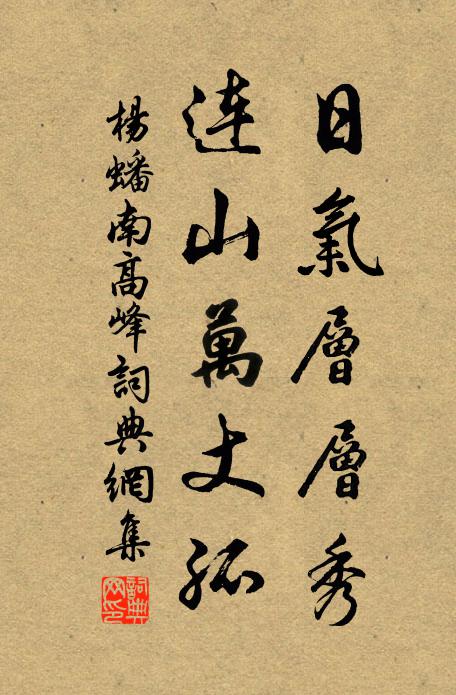 日氣層層秀
連山萬丈孤
楊蟠南高峰詞典網集
詞典
网印